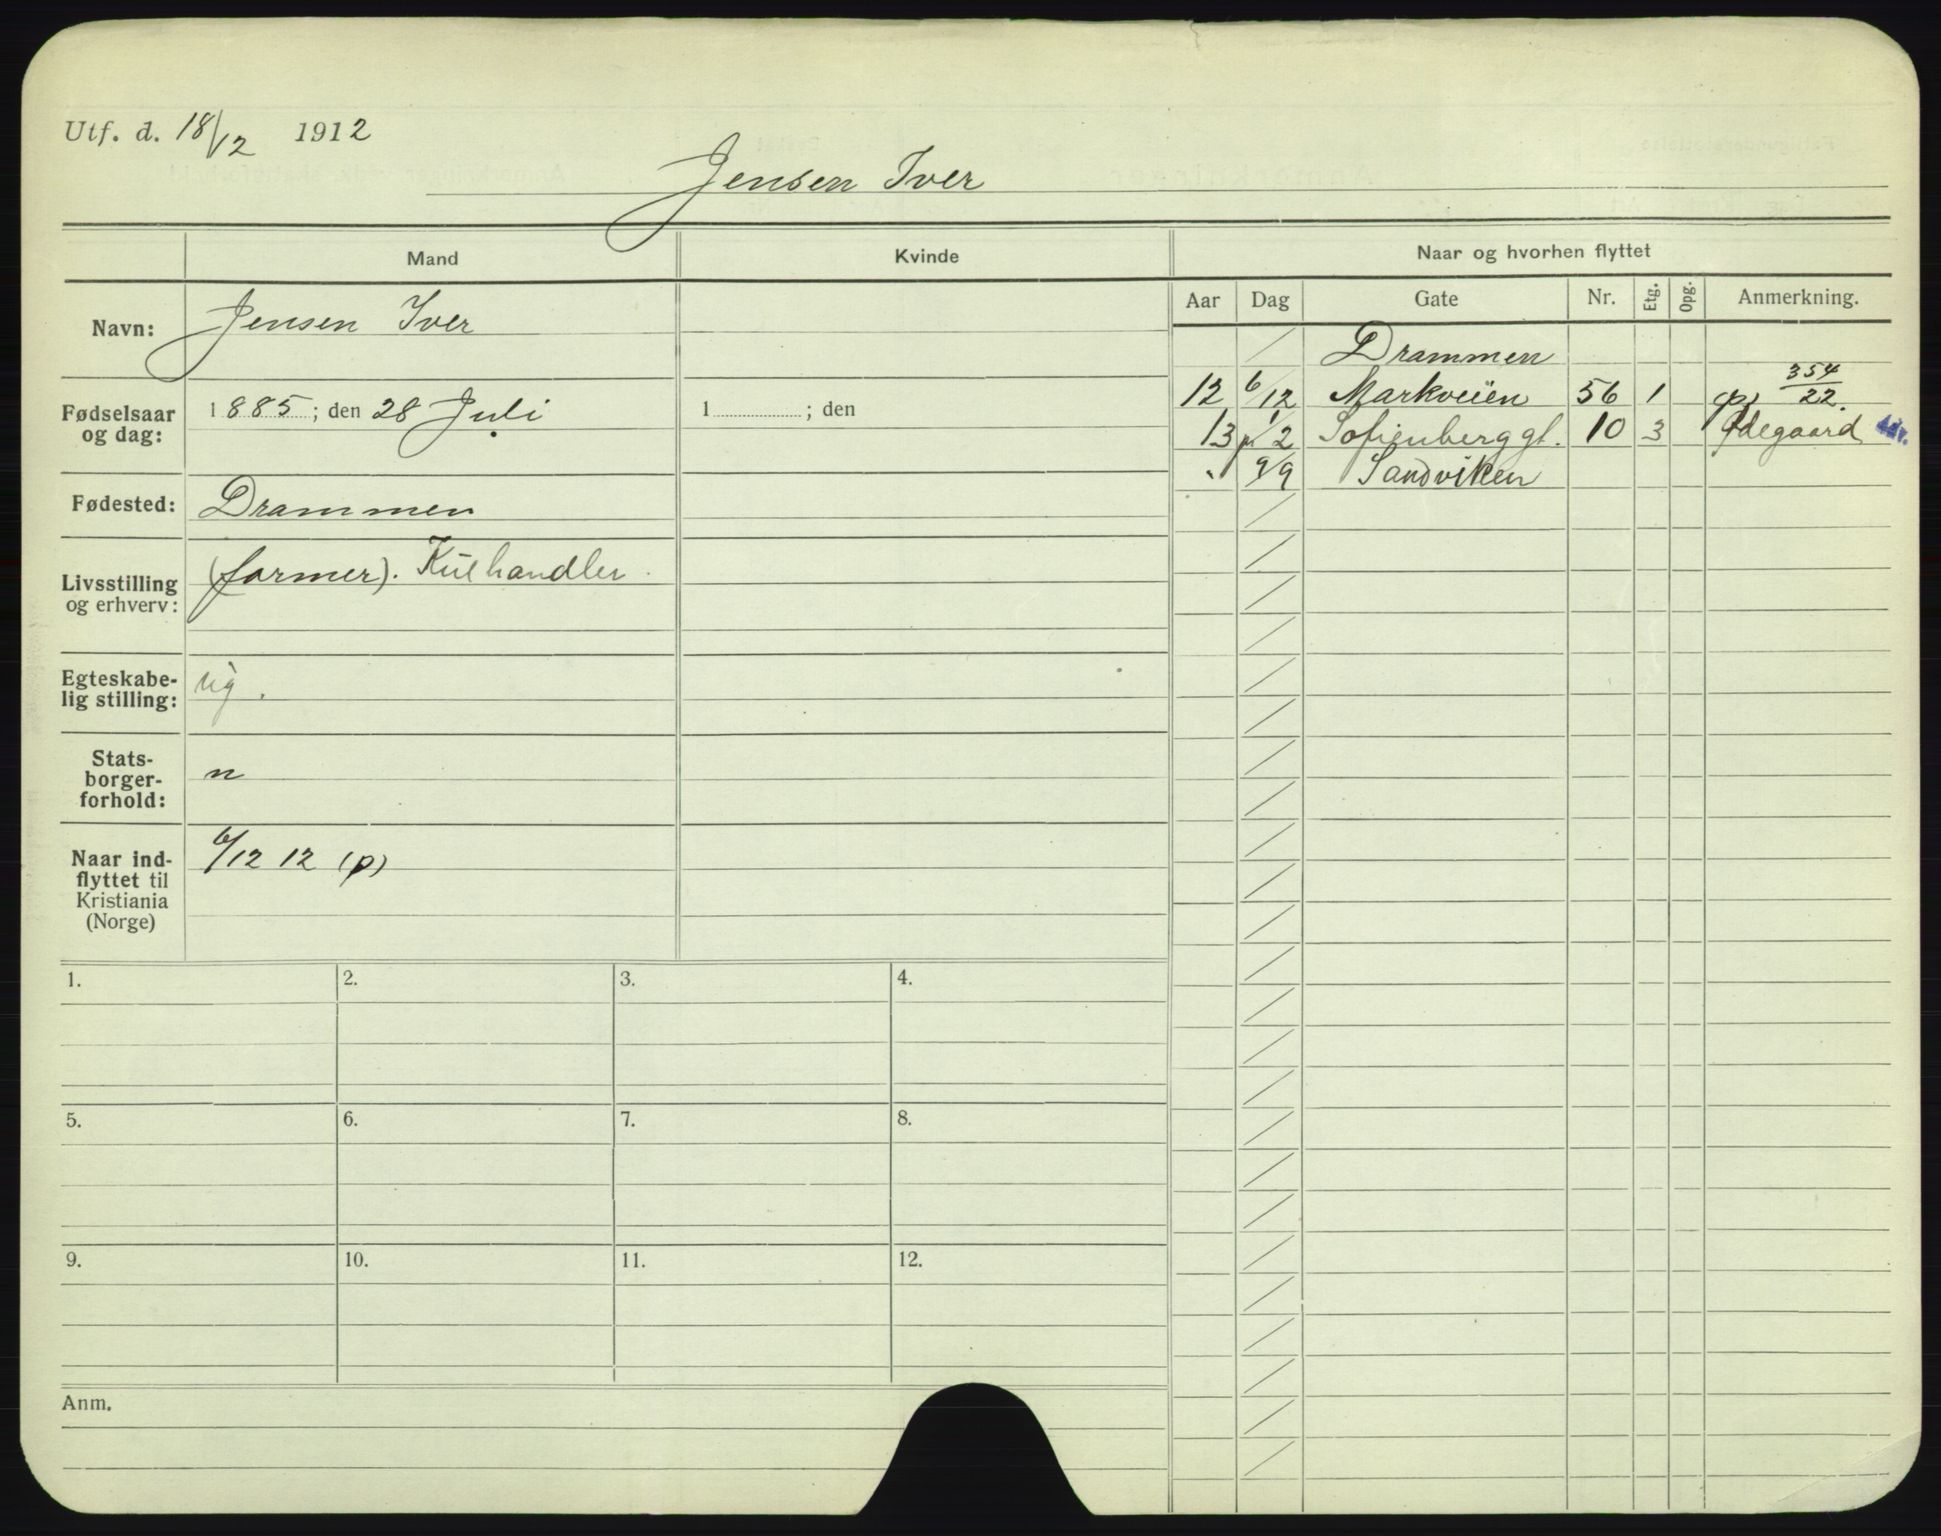 Utf. d. 18/12 1912
Jensen Iver
Mand
Kvinde
Naar og hvorhen flyttet
Aar Dag Gate Nr. Etg. Opg. Anmerkning.
Navn: Jensen Iver
Fødselsaar og dag: 1885; den 28 Juli
1 ; den
Fødested: Drammen
Livsstilling og erhverv: (former). Kulhandler.
Egteskabelig stilling: ug.
Statsborgerforhold: n
Naar indflyttet til Kristiania (Norge) 6/12 12 (p)
/ Drammen
12 6/12 Markveien 56 1 (p) 354/22.
13 1/2 Sofienberggt. 10 3 Ødegaard
" 9/9 Sandviken
1. 2. 3. 4.
5. 6. 7. 8.
9. 10. 11. 12.
Anm.